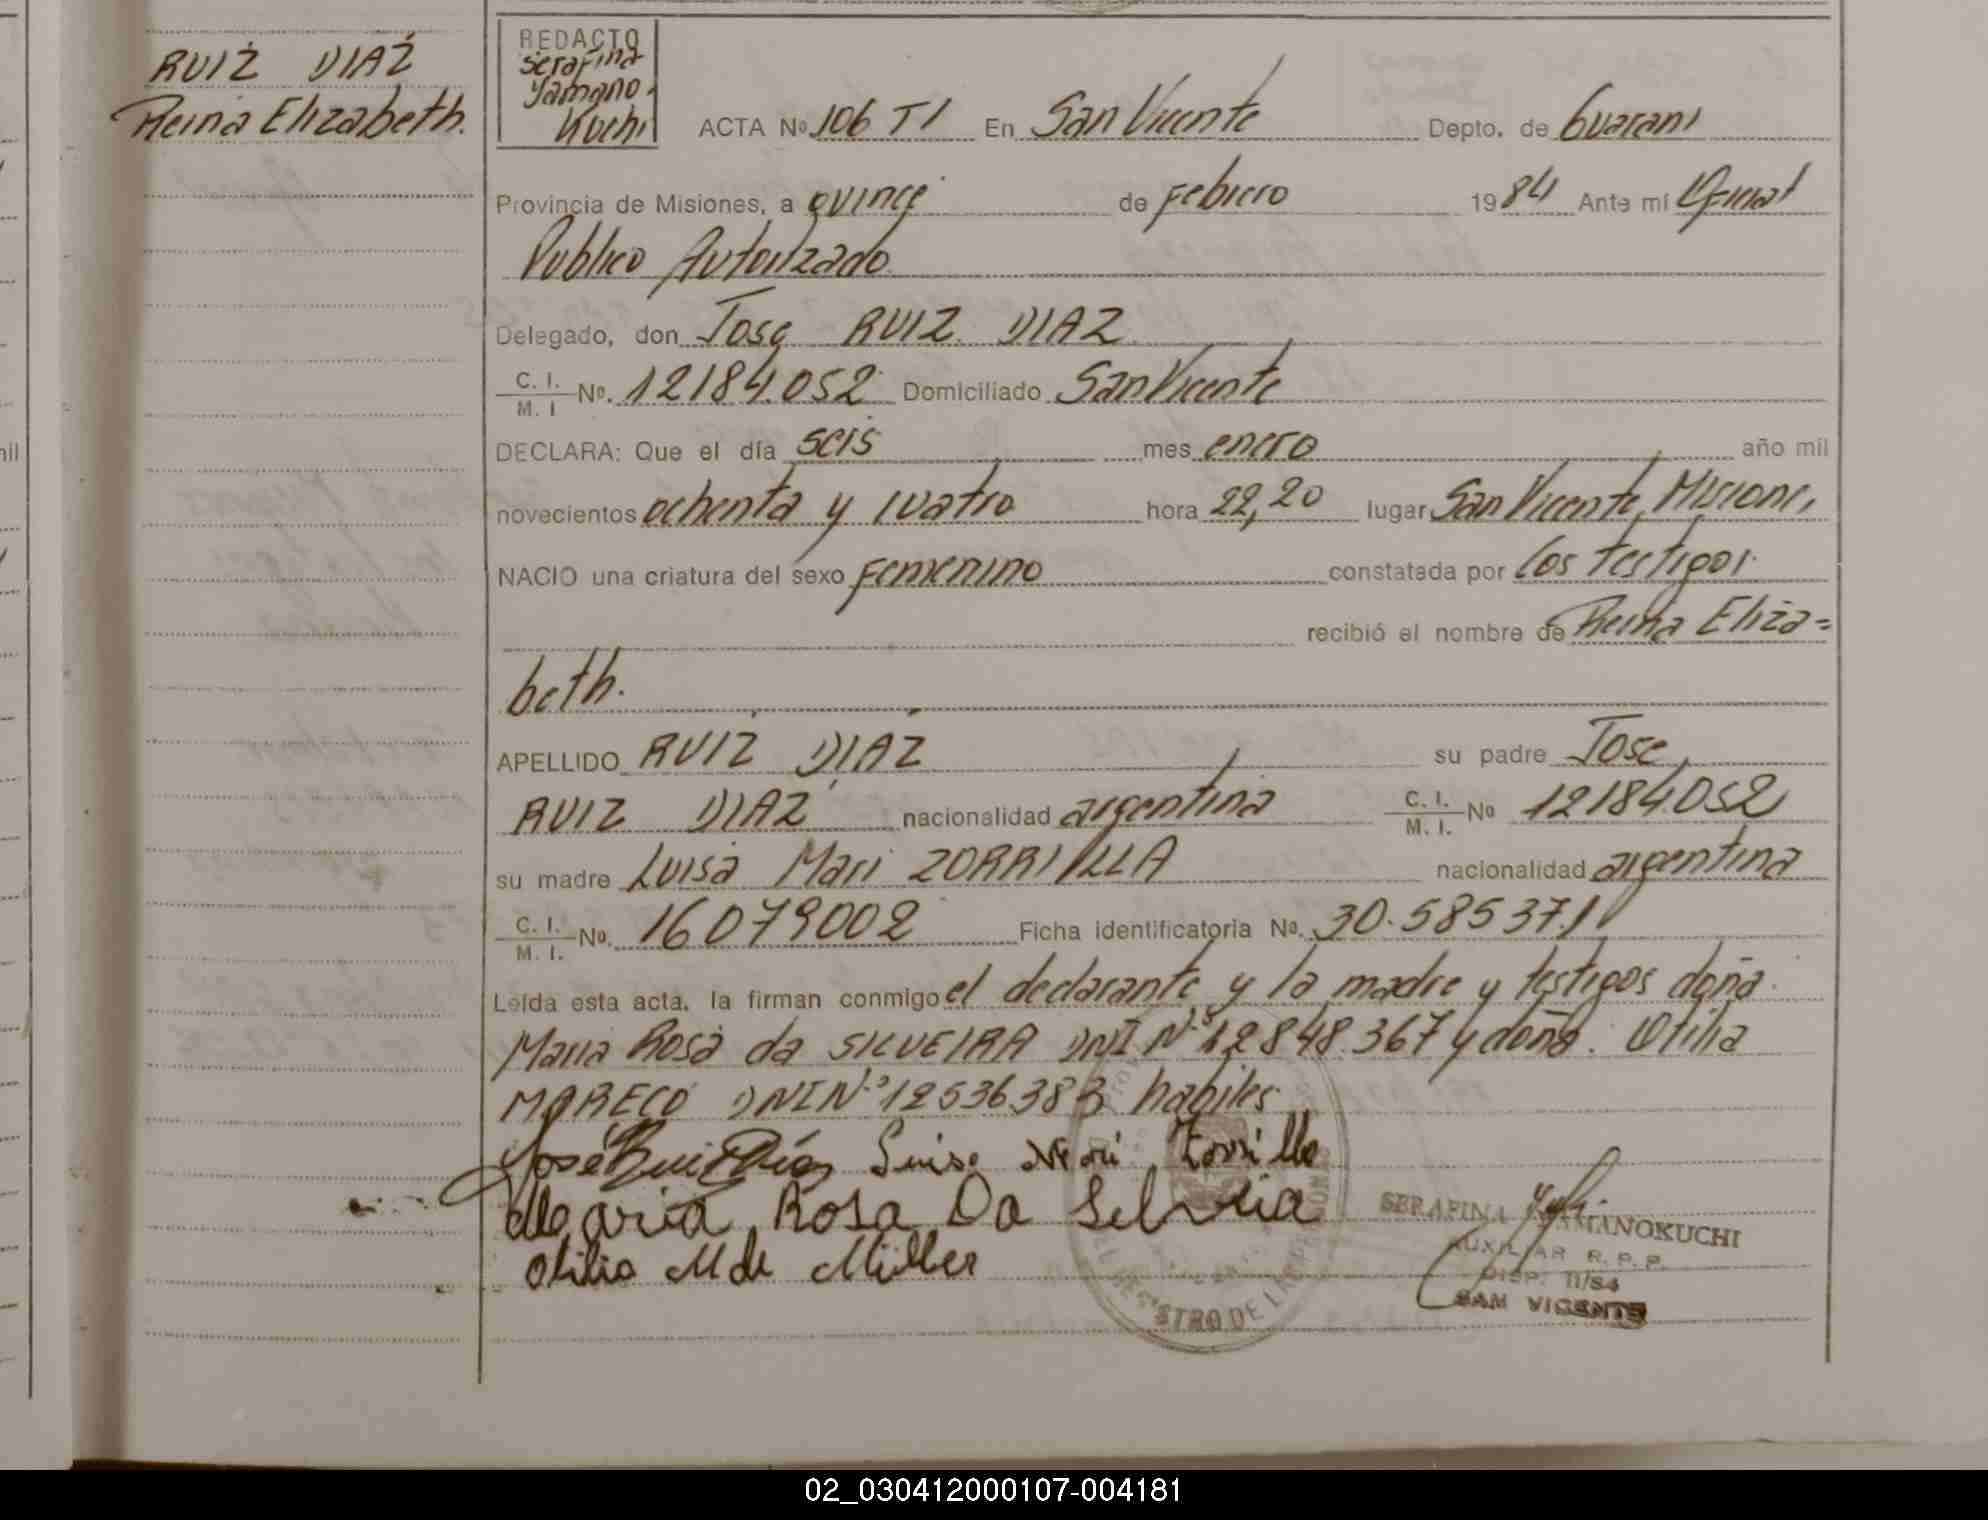 RUIZ DIAZ
Reina Elizabeth.
REDACTO
Serafina
Yamano-
Kuchi
ACTA Nº 106 T1 En San Vicente Depto. de Guarani
Provincia de Misiones, a quince de Febrero 1984 Ante mí Oficial
Publico Autorizado
Delegado, don Jose RUIZ DIAZ
C. I. / M. I Nº. 12184.052 Domiciliado San Vicente
DECLARA: Que el día seis mes enero año mil
novecientos ochenta y cuatro hora 22,20 lugar San Vicente, Misiones
NACIO una criatura del sexo Femenino constatada por los testigos.
recibió el nombre de Reina Eliza=
beth.
APELLIDO RUIZ DIAZ su padre Jose
RUIZ DIAZ nacionalidad argentina C. I. / M. I. Nº 12184.052
su madre Luisa Mari ZORRILLA nacionalidad argentina
C. I. / M. I. Nº. 16079002 Ficha identificatoria Nº. 30.585371
Leída esta acta, la firman conmigo el declarante y la madre y testigos doña
Maria Rosa da SILVEIRA DNI Nº 12848.367 y doña Otilia
MARECO DNI Nº 12536383 habiles
José Ruiz Díaz Luisa Mari Zorrilla
Maria Rosa Da Selveia
Otilia M de Müller
SERAFINA YAMANOKUCHI
AUXILIAR R. P. P.
DISP. 11/84
SAN VICENTE
REGISTRO DE L
02_030412000107-004181